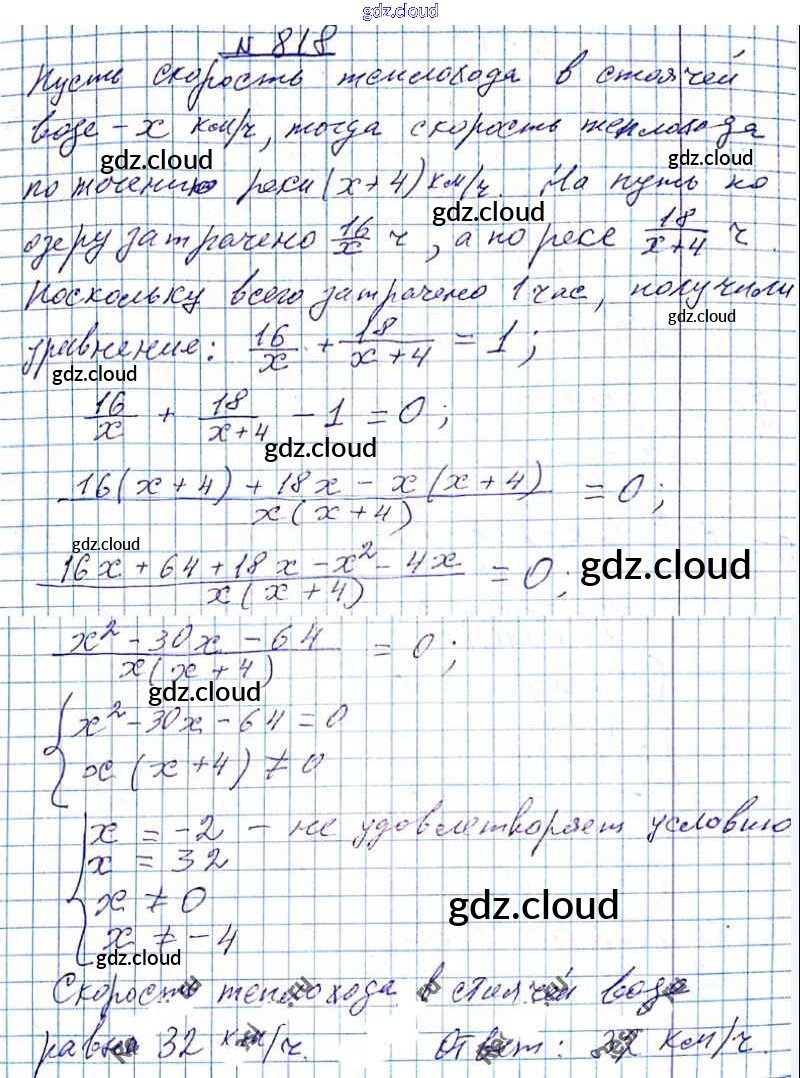 gdz.cloud
N 818
Пусть скорость теплохода в стоячей
воде - x км/ч, тогда скорость теплохода
gdz.cloud
по течению реки (x+4) км/ч. На путь по
gdz.cloud
озеру затрачено 16/x ч, а по реке 18/(x+4) ч.
Поскольку всего затрачено 1 час, получили
gdz.cloud
уравнение: 16/x + 18/(x+4) = 1;
gdz.cloud
16/x + 18/(x+4) - 1 = 0;
gdz.cloud
(16(x+4) + 18x - x(x+4))/(x(x+4)) = 0;
gdz.cloud
(16x + 64 + 18x - x² - 4x)/(x(x+4)) = 0;
gdz.cloud
(x² - 30x - 64)/(x(x+4)) = 0;
gdz.cloud
{ x² - 30x - 64 = 0
x(x+4) ≠ 0
{ x = -2 - не удовлетворяет условию
x = 32
x ≠ 0
gdz.cloud
x ≠ -4
gdz.cloud
Скорость теплохода в стоячей воде
равна 32 км/ч. Ответ: 32 км/ч.